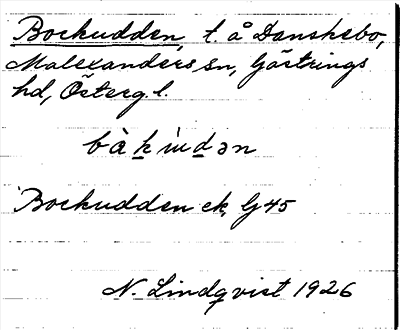 Bockudden, t. å Danskebo,
Malexanders sn, Göstrings
hd, Österg. l.
bàk ùdən
Bockudden ek, G 45
N. Lindqvist 1926